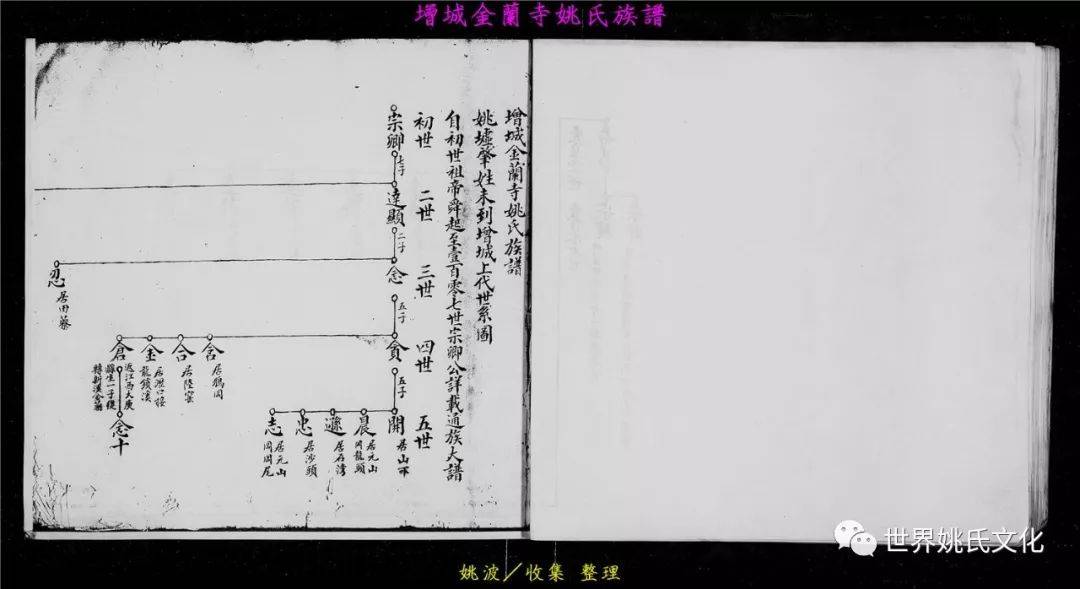 增城金蘭寺姚氏族譜
增城金蘭寺姚氏族譜
姚墟肇姓未到增城上代世系圖
自初世祖帝舜起至壹百零七世宗卿公詳載通族大譜
初世
二世
三世
四世
五世
宗卿
七子
達顯
二子
念
五子
貪
五子
開
居山下
晨
居元山
岡龍頭
遜
居石湾
忠
居沙頭
志
居元山
岡岡尾
含
居鶴岡
合
居陸
金
龍鎖溪
倉
遷江西大庾
縣生一子復
念十
忍
居田蔡
世界姚氏文化
姚波／收集 整理